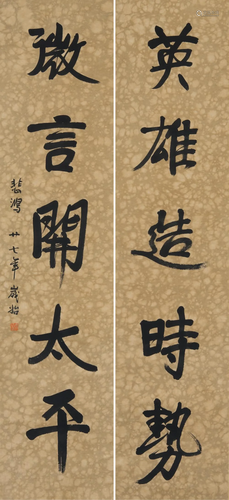 英雄造時勢
微言開太平
悲鴻 廿七年歲始